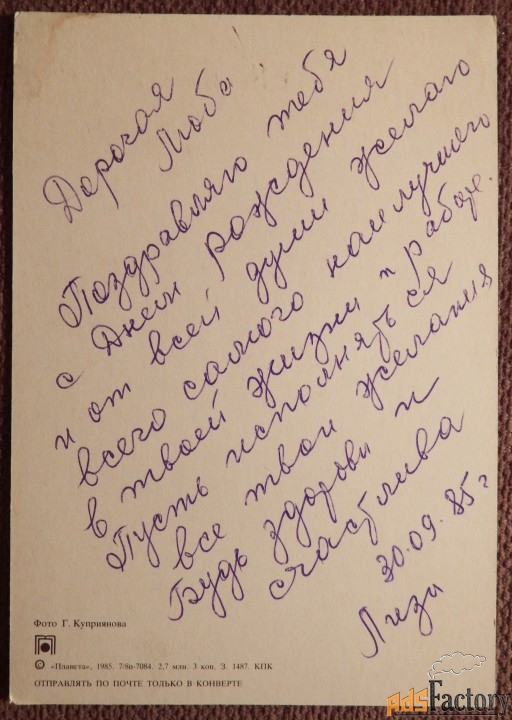 Дорогая
Люба
Поздравляю тебя
с Днем рождения
и от всей души желаю
всего самого наилучшего
в твоей жизни и работе.
Пусть исполняться
все твои желания
Будь здорови и
счастлива
30.09.85г
Лизи
Фото Г. Куприянова
© «Планета», 1985. 7/8п-7084. 2,7 млн. 3 коп. З. 1487. КПК
ОТПРАВЛЯТЬ ПО ПОЧТЕ ТОЛЬКО В КОНВЕРТЕ
AdsFactory